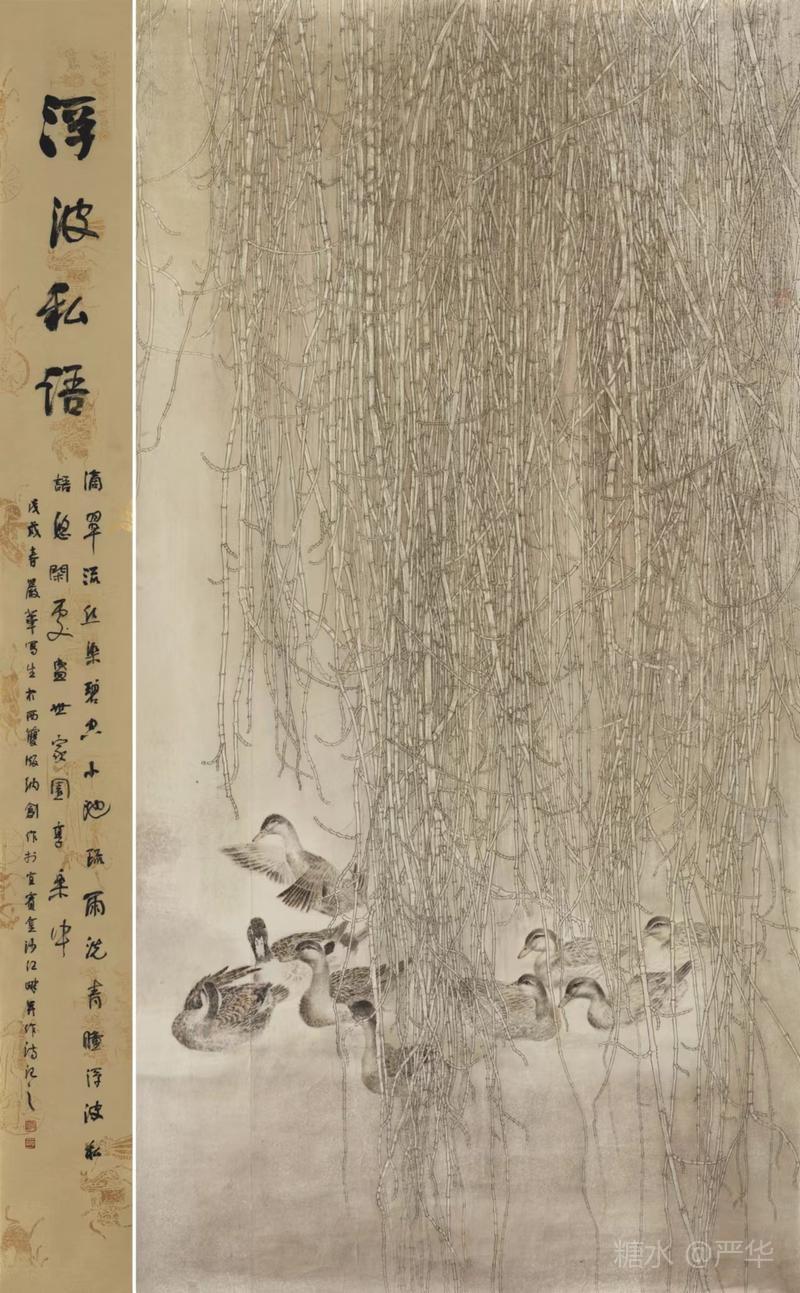 浮波私语
滴翠流丝染碧空小池疏雨洗青瞳浮波私
語悠閑處盛世家園享乐中
戊戌春嚴華写生於西雙版纳創作於宜賓金沙江畔并作诗记之
糖水 @严华